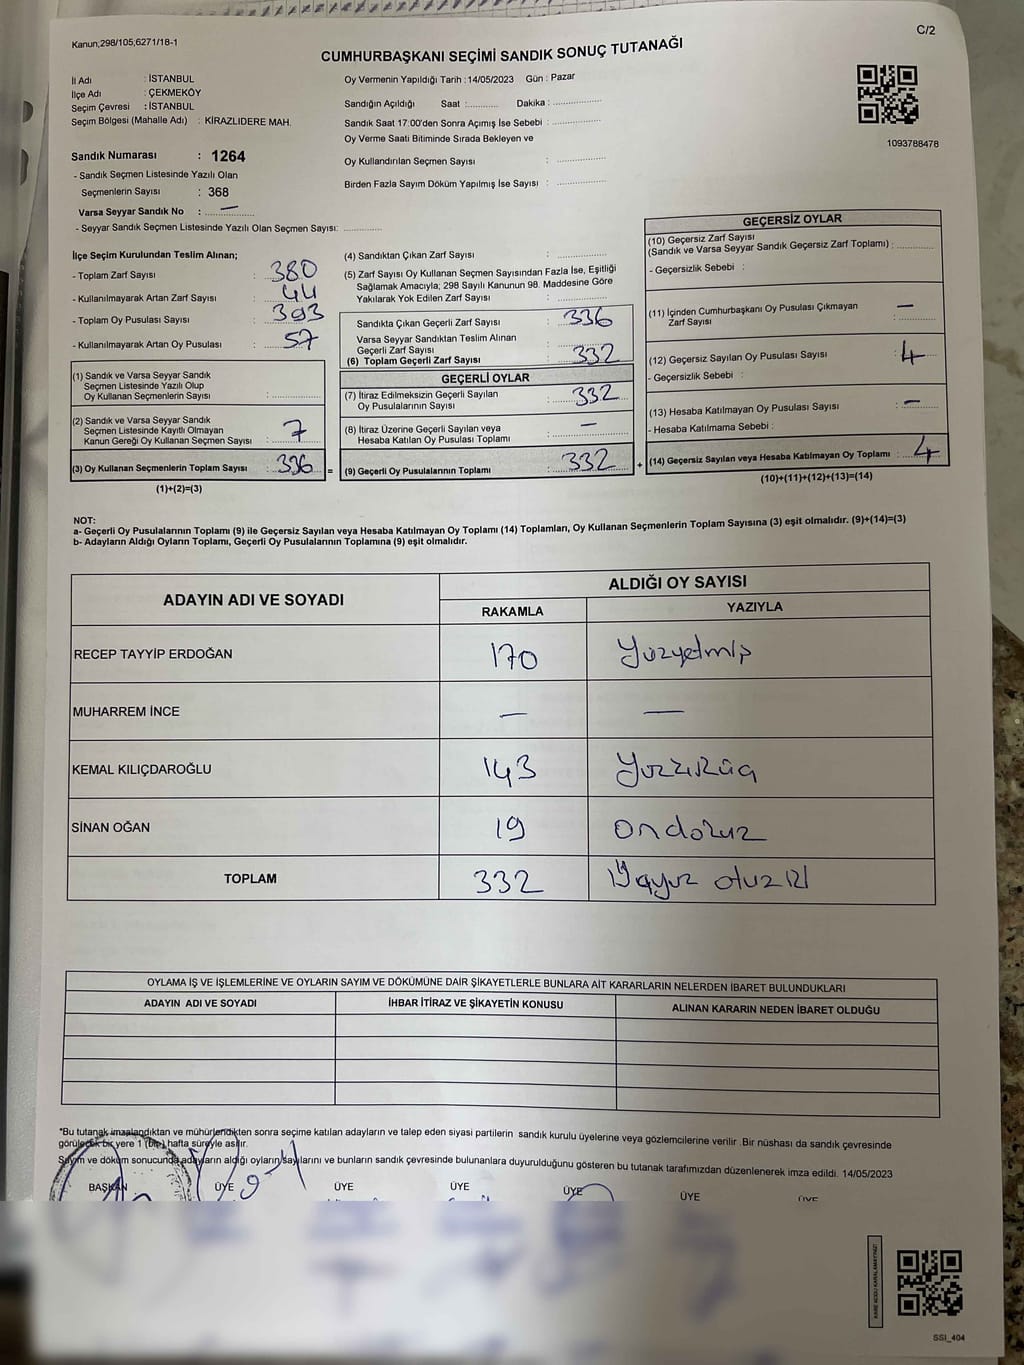 Kanun;298/105,6271/18-1
C/2
CUMHURBAŞKANI SEÇİMİ SANDIK SONUÇ TUTANAĞI
İl Adı : İSTANBUL
İlçe Adı : ÇEKMEKÖY
Seçim Çevresi : İSTANBUL
Seçim Bölgesi (Mahalle Adı) : KİRAZLIDERE MAH.
Sandık Numarası : 1264
- Sandık Seçmen Listesinde Yazılı Olan
Seçmenlerin Sayısı : 368
Varsa Seyyar Sandık No : —
- Seyyar Sandık Seçmen Listesinde Yazılı Olan Seçmen Sayısı: ............
Oy Vermenin Yapıldığı Tarih : 14/05/2023 Gün : Pazar
Sandığın Açıldığı Saat :.......... Dakika : ................
Sandık Saat 17:00'den Sonra Açımış İse Sebebi : ................
Oy Verme Saati Bitiminde Sırada Bekleyen ve
Oy Kullandırılan Seçmen Sayısı : ................
Birden Fazla Sayım Döküm Yapılmış İse Sayısı : ................
1093788478
İlçe Seçim Kurulundan Teslim Alınan;
- Toplam Zarf Sayısı : 380
- Kullanılmayarak Artan Zarf Sayısı : 44
- Toplam Oy Pusulası Sayısı : 393
- Kullanılmayarak Artan Oy Pusulası : 57
(1) Sandık ve Varsa Seyyar Sandık
Seçmen Listesinde Yazılı Olup
Oy Kullanan Seçmenlerin Sayısı : ................
(2) Sandık ve Varsa Seyyar Sandık
Seçmen Listesinde Kayıtlı Olmayan
Kanun Gereği Oy Kullanan Seçmen Sayısı : 7
(3) Oy Kullanan Seçmenlerin Toplam Sayısı : 336 =
(1)+(2)=(3)
(4) Sandıktan Çıkan Zarf Sayısı : ................
(5) Zarf Sayısı Oy Kullanan Seçmen Sayısından Fazla İse, Eşitliği
Sağlamak Amacıyla; 298 Sayılı Kanunun 98. Maddesine Göre
Yakılarak Yok Edilen Zarf Sayısı : ................
Sandıkta Çıkan Geçerli Zarf Sayısı : 336
Varsa Seyyar Sandıktan Teslim Alınan
Geçerli Zarf Sayısı
(6) Toplam Geçerli Zarf Sayısı : 332
GEÇERLİ OYLAR
(7) İtiraz Edilmeksizin Geçerli Sayılan
Oy Pusulalarının Sayısı : 332
(8) İtiraz Üzerine Geçerli Sayılan veya
Hesaba Katılan Oy Pusulası Toplamı : —
(9) Geçerli Oy Pusulalarının Toplamı : 332 +
GEÇERSİZ OYLAR
(10) Geçersiz Zarf Sayısı
(Sandık ve Varsa Seyyar Sandık Geçersiz Zarf Toplamı) : ............
- Geçersizlik Sebebi :
(11) İçinden Cumhurbaşkanı Oy Pusulası Çıkmayan
Zarf Sayısı : —
(12) Geçersiz Sayılan Oy Pusulası Sayısı : 4
- Geçersizlik Sebebi :
(13) Hesaba Katılmayan Oy Pusulası Sayısı : —
- Hesaba Katılmama Sebebi :
(14) Geçersiz Sayılan veya Hesaba Katılmayan Oy Toplamı : 4
(10)+(11)+(12)+(13)=(14)
NOT:
a- Geçerli Oy Pusulalarının Toplamı (9) ile Geçersiz Sayılan veya Hesaba Katılmayan Oy Toplamı (14) Toplamları, Oy Kullanan Seçmenlerin Toplam Sayısına (3) eşit olmalıdır. (9)+(14)=(3)
b- Adayların Aldığı Oyların Toplamı, Geçerli Oy Pusulalarının Toplamına (9) eşit olmalıdır.
ADAYIN ADI VE SOYADI
ALDIĞI OY SAYISI
RAKAMLA YAZIYLA
RECEP TAYYİP ERDOĞAN 170 Yüzyetmiş
MUHARREM İNCE — —
KEMAL KILIÇDAROĞLU 143
SİNAN OĞAN 19 ondokuz
TOPLAM 332 Üçyüz otuz iki
OYLAMA İŞ VE İŞLEMLERİNE VE OYLARIN SAYIM VE DÖKÜMÜNE DAİR ŞİKAYETLERLE BUNLARA AİT KARARLARIN NELERDEN İBARET BULUNDUKLARI
ADAYIN ADI VE SOYADI İHBAR İTİRAZ VE ŞİKAYETİN KONUSU ALINAN KARARIN NEDEN İBARET OLDUĞU
*Bu tutanak imzalandıktan ve mühürlendikten sonra seçime katılan adayların ve talep eden siyasi partilerin sandık kurulu üyelerine veya gözlemcilerine verilir .Bir nüshası da sandık çevresinde
görülecek bir yere 1 (bir) hafta süreyle asılır.
Sayım ve döküm sonucunda adayların aldığı oyların sayılarını ve bunların sandık çevresinde bulunanlara duyurulduğunu gösteren bu tutanak tarafımızdan düzenlenerek imza edildi. 14/05/2023
BAŞKAN ÜYE ÜYE ÜYE ÜYE ÜYE ÜYE
KARE KODU KARALAMAYINIZ!
SSI_404